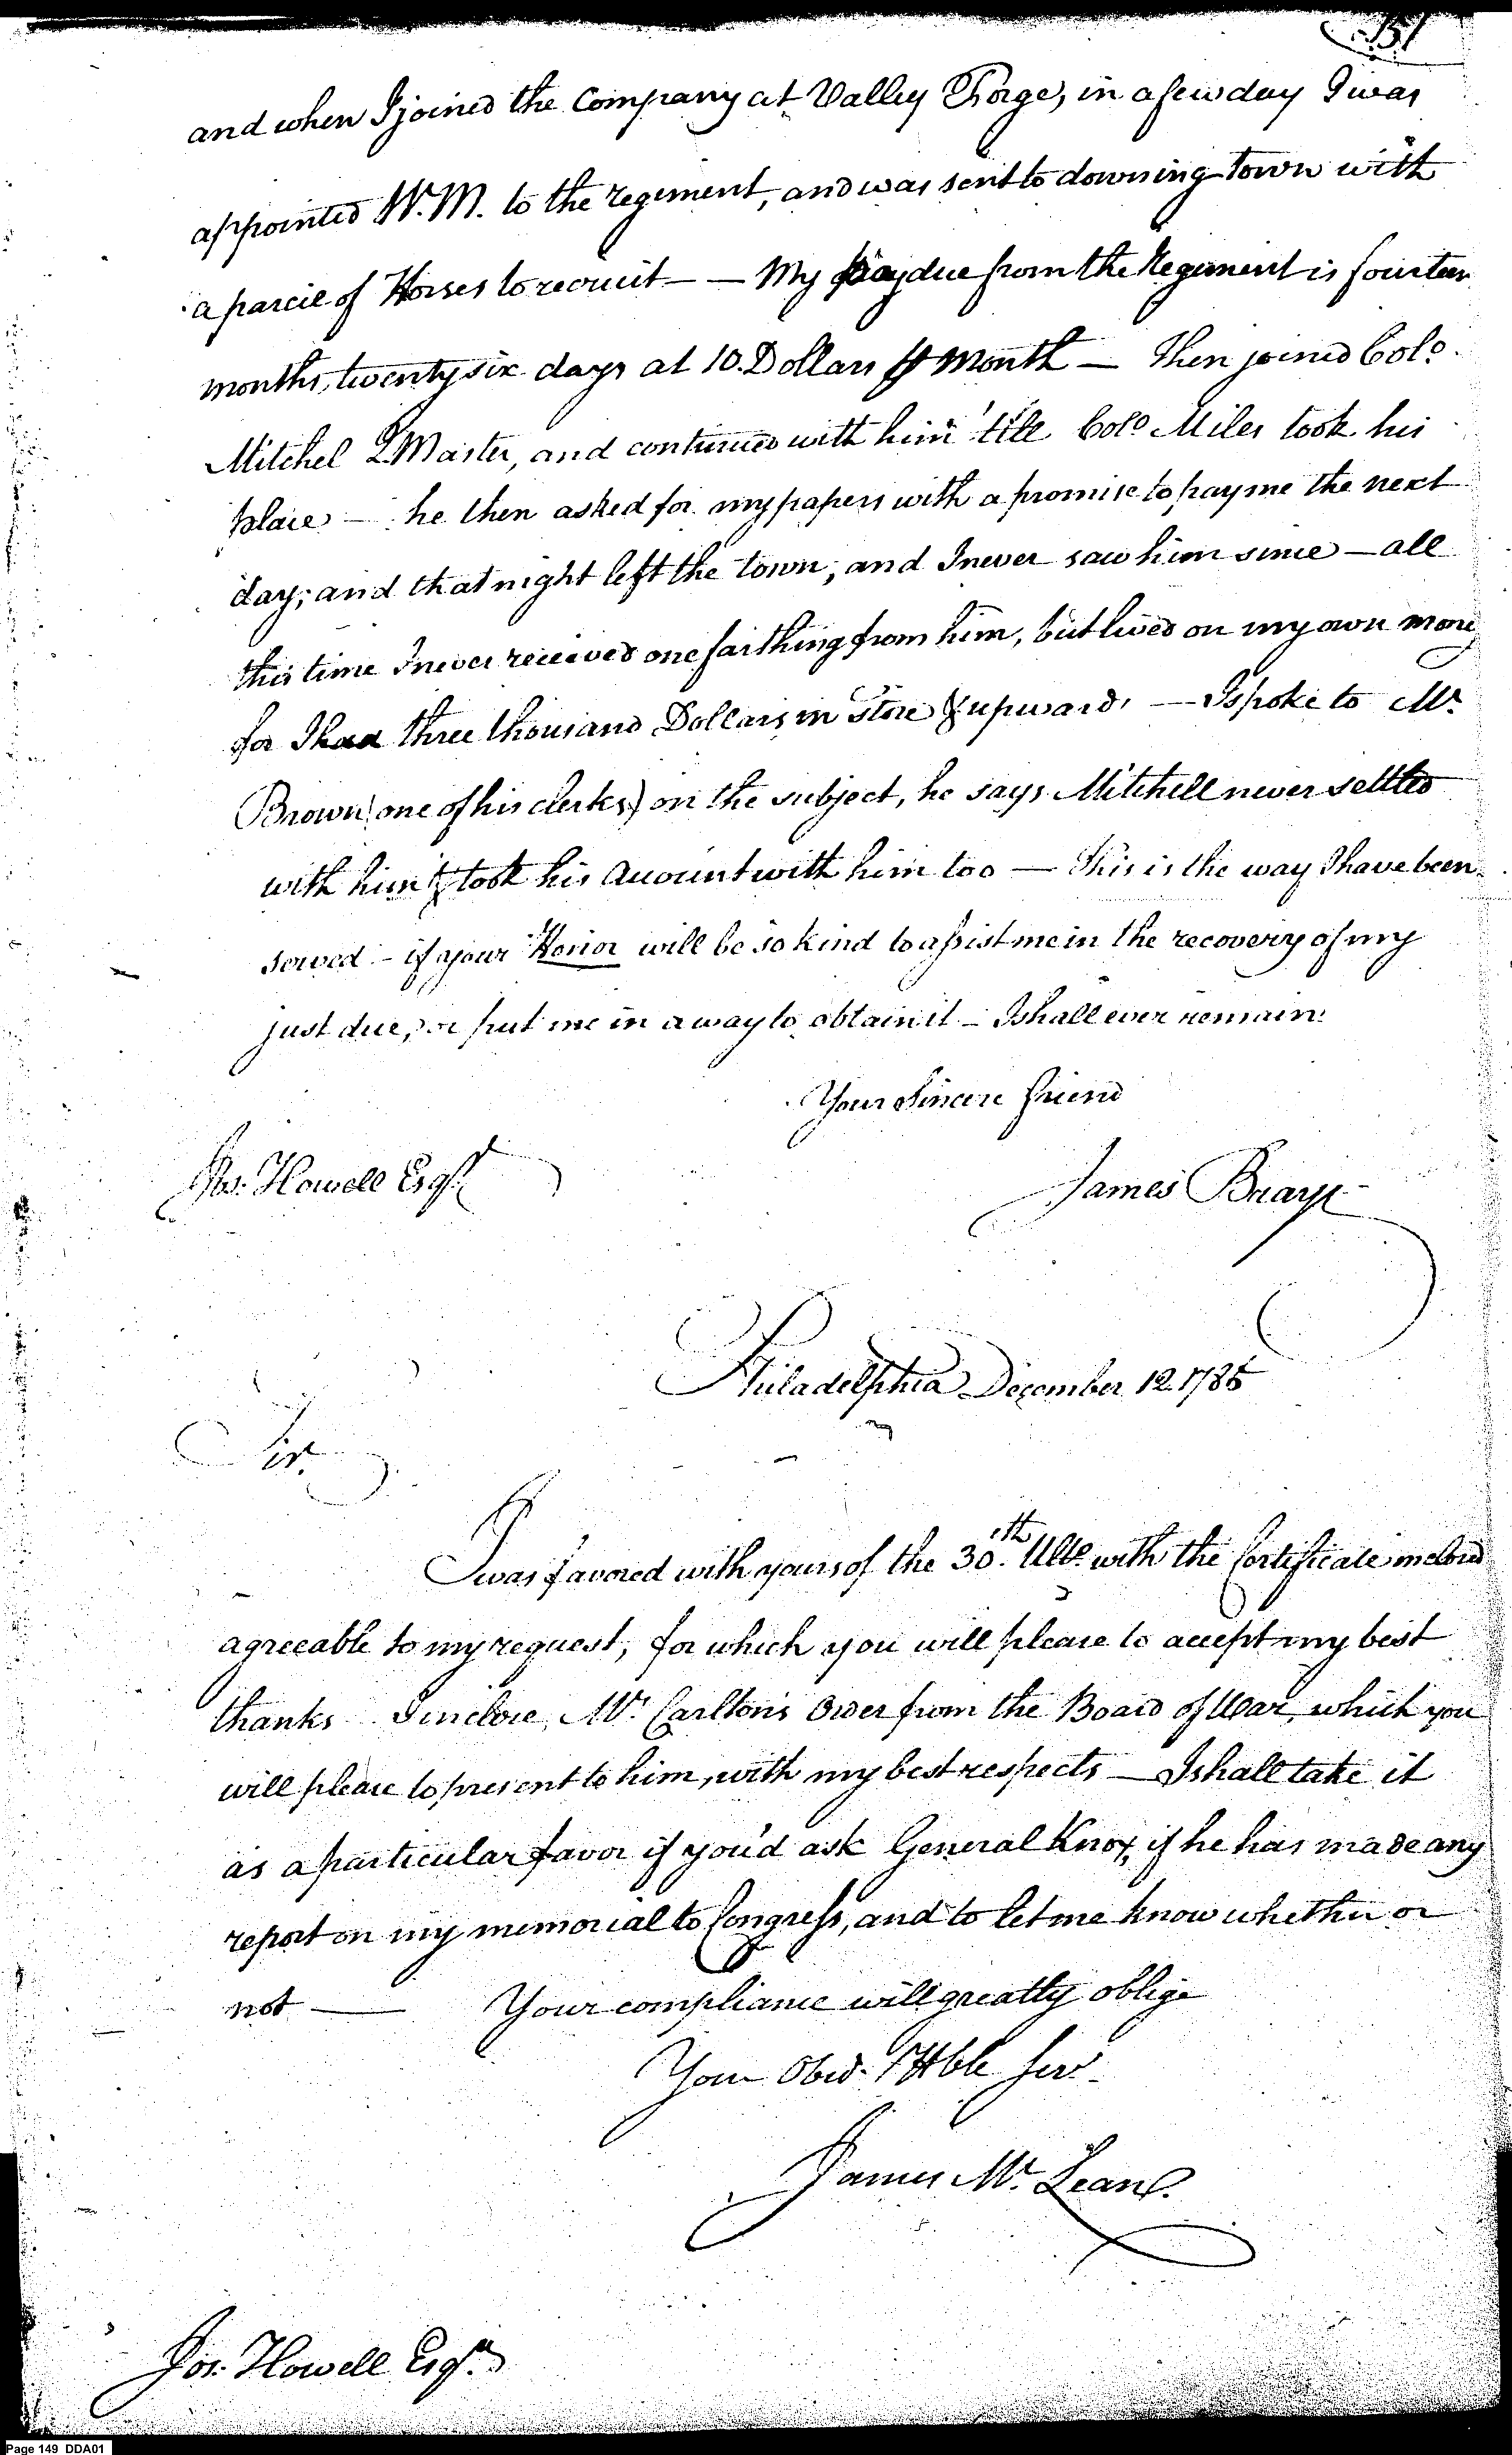 151
and when I joined the Company at Valley Forge, in a few day I was
appointed W.M. to the regiment, and was sent to downing town with
a parcil of Horses to recruit — — My pay due from the Regiment is fourteen
months, twenty six days at 10. Dollars ⅌ Month — Then joined Colo.
Mitchel Q Master, and continued with him 'till Colo Miles took his
place — he then asked for my papers with a promise to pay me the next
day; and that night left the town; and I never saw him since — all
this time I never received one farthing from him, but lived on my own mony
for I had three thousand Dollars in Store & upward, — I spoke to Mr.
Brown (one of his clerks) on the subject, he says Mitchell never settled
with him & took his Account with him too — This is the way I have been
served — if your Honor will be so kind to assist me in the recovery of my
just due, or put me in a way to obtain it — I shall ever remain
Your Sincere friend
Jos. Howell Esqr.
James Bearye
Philadelphia December 12. 1785
Sir.
I was favored with yours of the 30th. Ulto. with the Certificate inclosed
agreeable to my request, for which you will please to accept my best
thanks I inclose, Mr. Carlton's Order from the Board of War, which you
will please to present to him, with my best respects — I shall take it
as a particular favor if you'd ask General Knox, if he has made any
report on my memorial to Congress, and to let me know whether or
not — Your compliance will greatly oblige
Your Obed. & Hble Serv.
James Mc. Lean.
Jos. Howell Esqr.
Page 149 DDA01